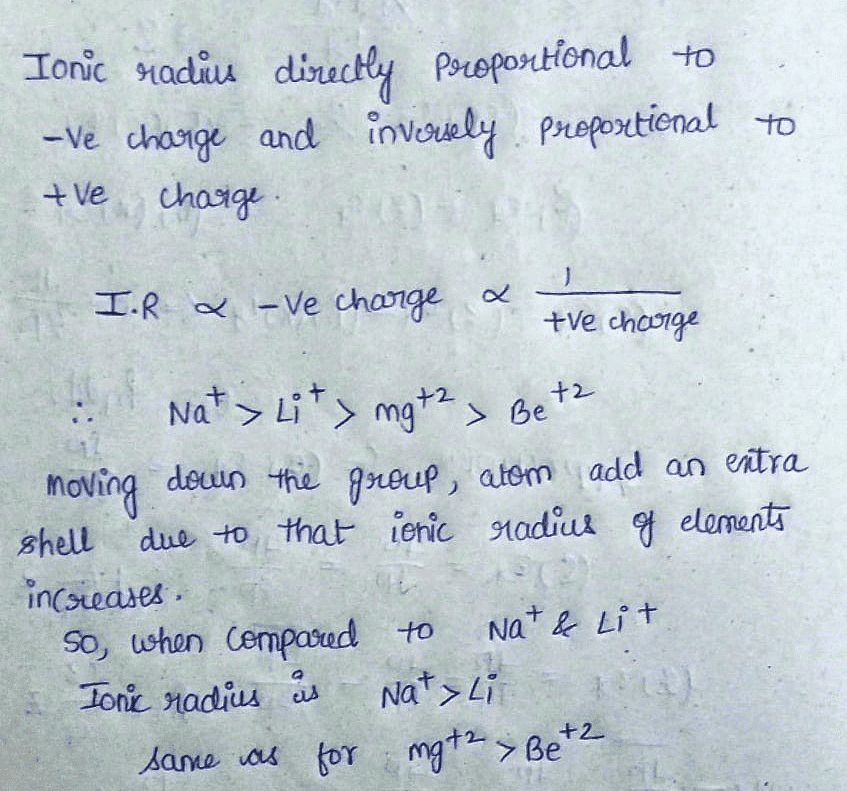 Ionic radius directly proportional to
-ve charge and inversely proportional to
+ve charge.
I.R ∝ -ve charge ∝ 1/+ve charge
∴ Na⁺ > Li⁺ > mg⁺² > Be⁺²
moving down the group, atom add an extra
shell due to that ionic radius of elements
increases.
So, when compared to Na⁺ & Li⁺
Ionic radius is Na⁺ > Li
same as for mg⁺² > Be⁺²